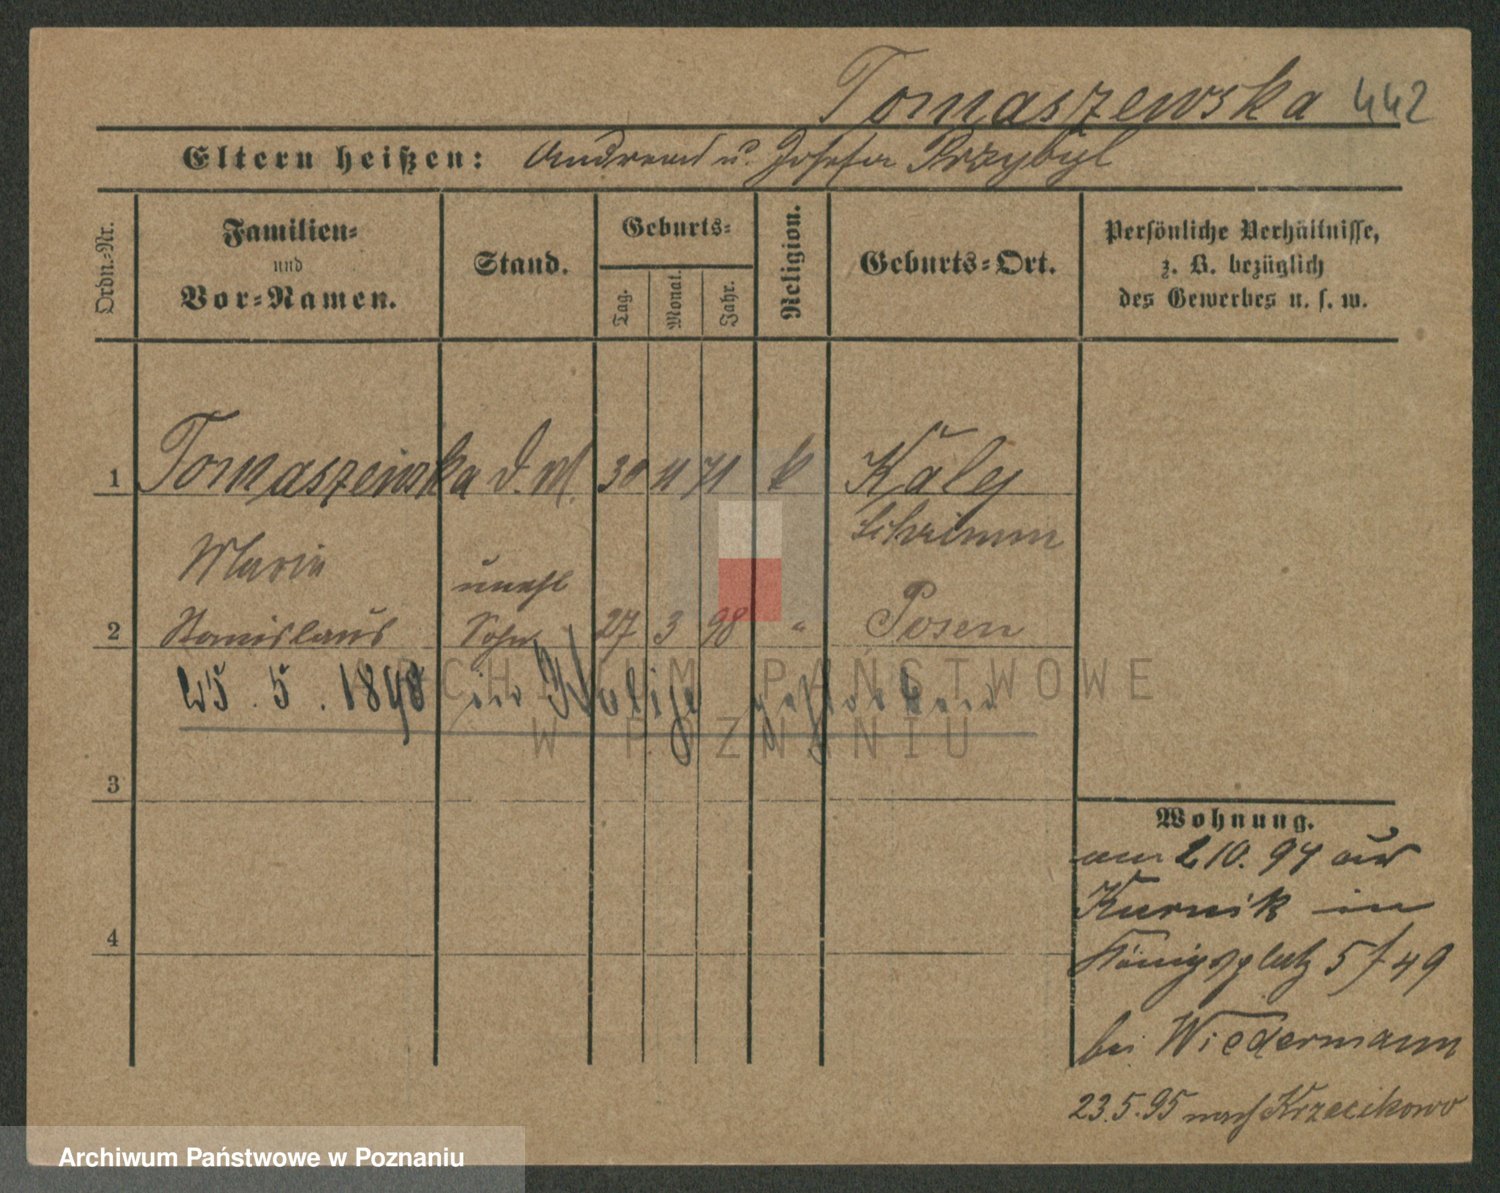 Tomaszewska 442
Eltern heißen: Andreas u. Josefa Przybyl
Ordn.-Nr.
Familien-
und
Vor-Namen.
Stand.
Geburts-
Tag.
Monat.
Jahr.
Religion.
Geburts-Ort.
Persönliche Verhältnisse,
z. B. bezüglich
des Gewerbes u. s. w.
1 Tomaszewska d. M. 30 11 71 k
Schrimm
Maria
unehl
2 Stanislaus Sohn 27 3 98 " Posen
5. 1898 in gestorben
ARCHIWUM PAŃSTWOWE
W POZNANIU
3
4
Wohnung.
am 2 10. 94 aus
Kurnik in
Königsplatz 5 / 49
bei Wiedermann
23.5.95 nach Krzecikowo
Archiwum Państwowe w Poznaniu